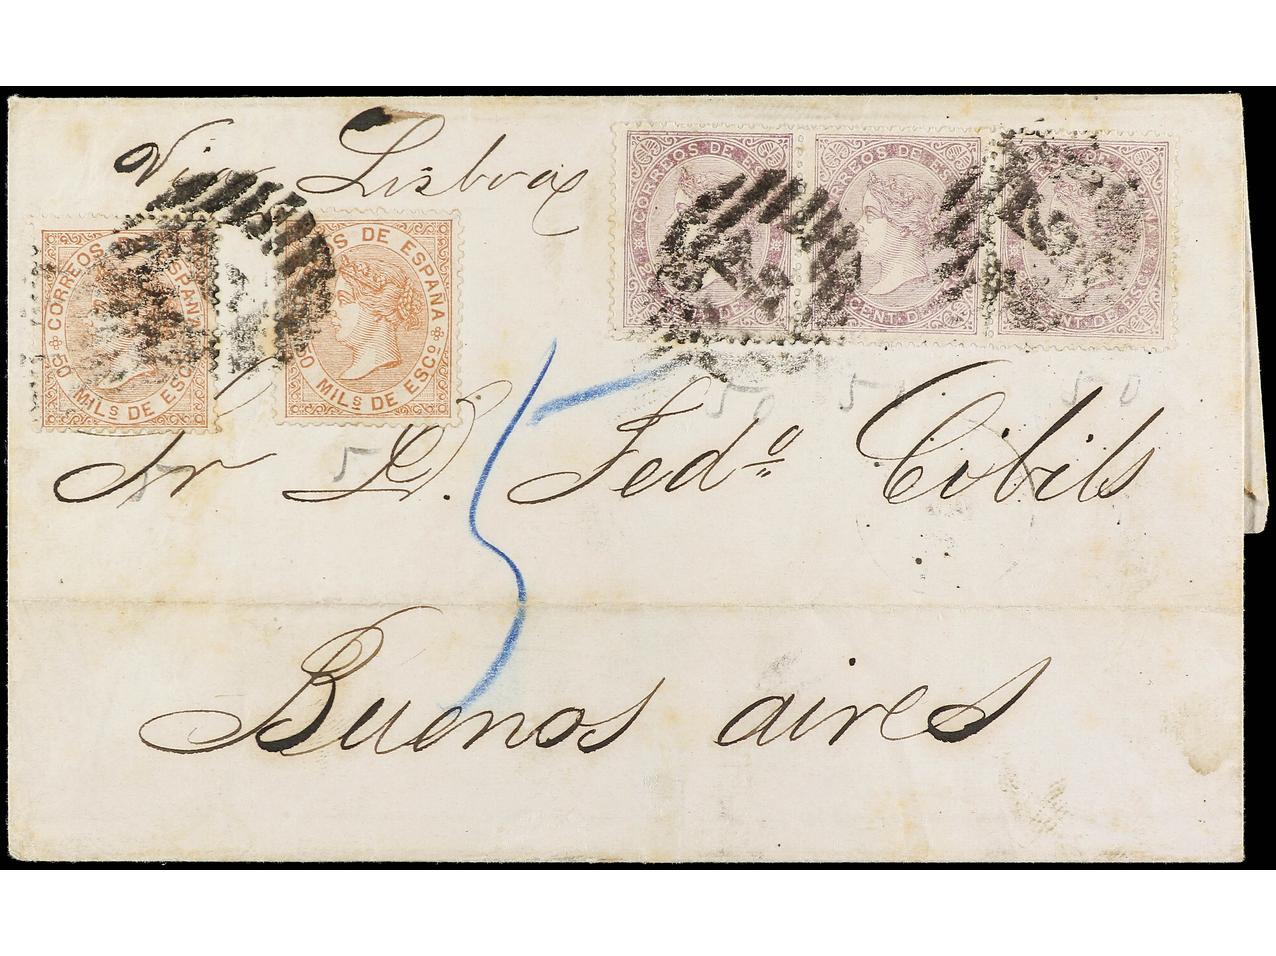 Via Lisboa
CORREOS DE ESPAÑA
50 MILS DE ESCO
OS DE ESPAÑA
50 MILS DE ESCO
CORREOS DE E
DE
CORREOS DE ES
CENT. DE
CENT. DE ESC
5
50
5
50
5
5
Sr D. Fedo Cibils
Buenos aires